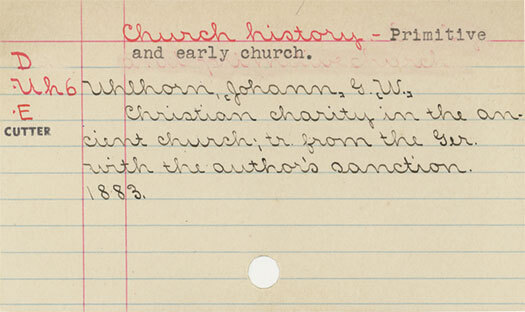 Church history - Primitive
and early church.
D
Uh6 Uhlhorn, Johann, G. W.,
.E Christian charity in the an-
CUTTER cient church; tr. from the Ger.
with the author's sanction.
1883.